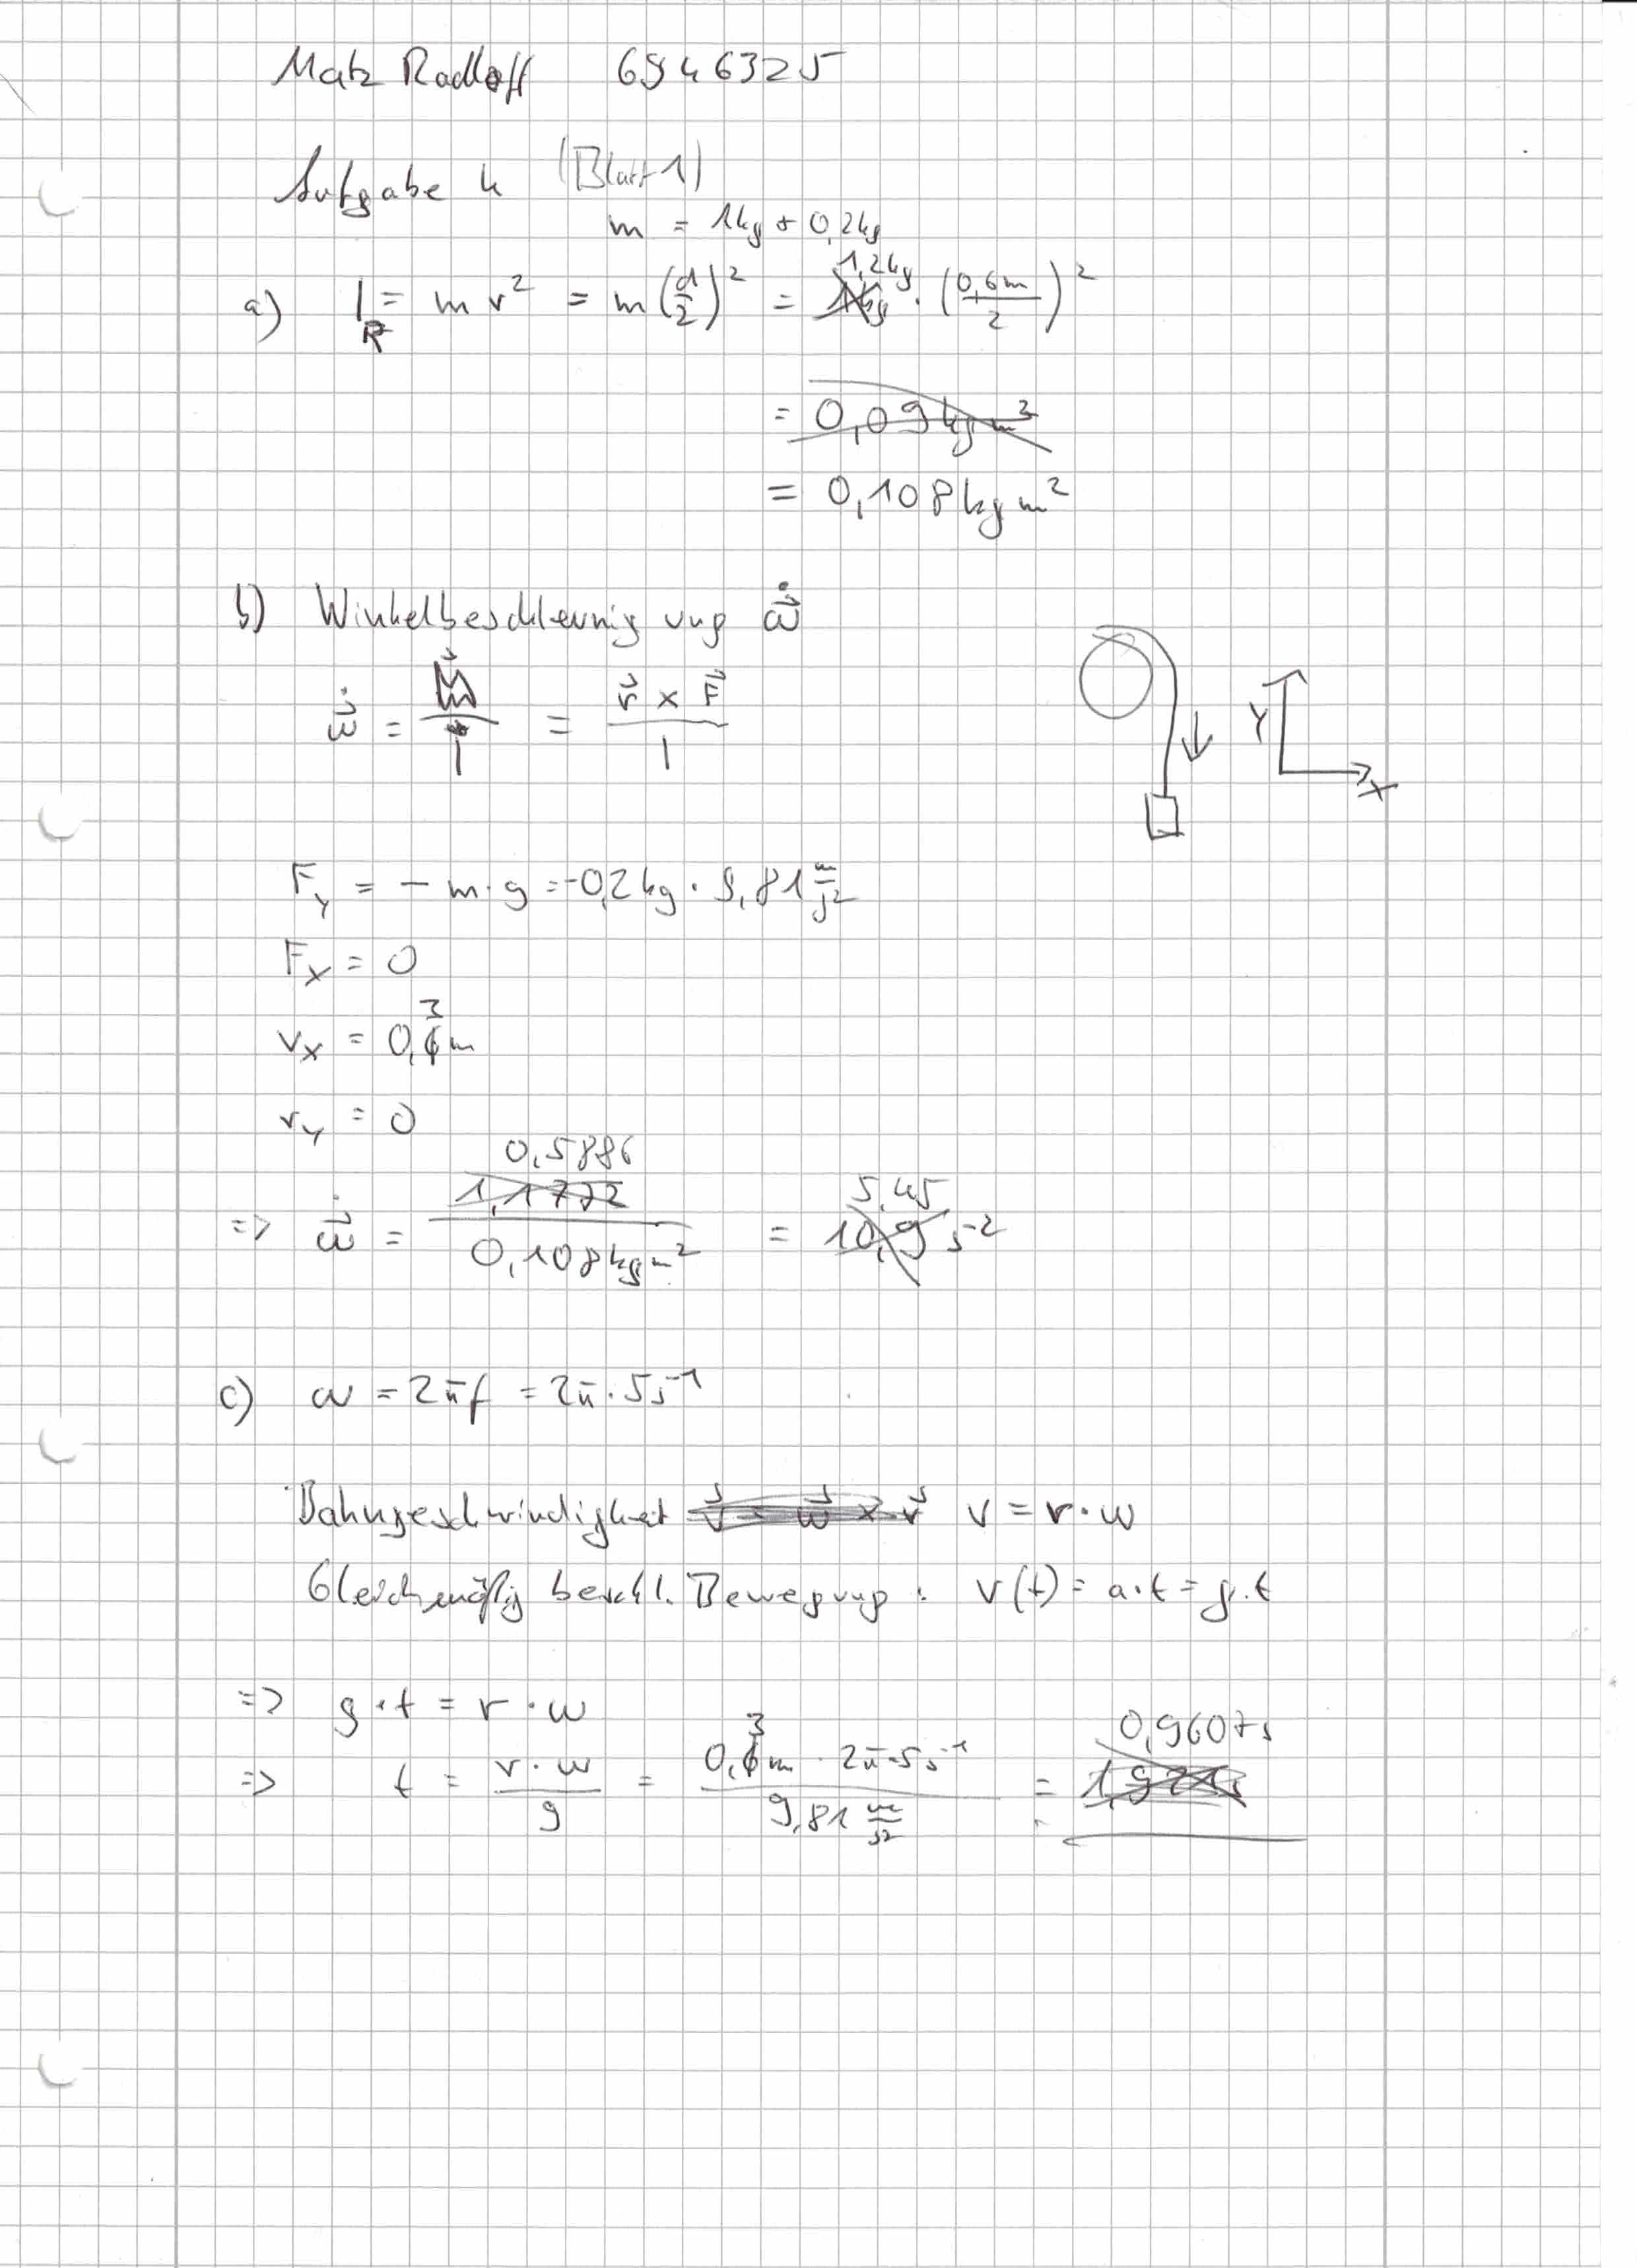 Matz Radloff 6946325
Aufgabe 4 (Blatt 1)
m = 1kg + 0,2kg
a) I_R = m r² = m (d/2)² = 1,2kg · (0,6m/2)²
= 0,09 kg m²
= 0,108 kg m²
b) Winkelbeschleunigung ω̇⃗
ω̇⃗ = M⃗/I = r⃗ × F⃗ / I
Y
X
F_y = - m · g = -0,2 kg · 9,81 m/s²
F_x = 0
r_x = 0,3m
r_y = 0
=> ω̇⃗ = 0,5886 / 0,108 kg m² = 5,45 s⁻²
c) ω = 2πf = 2π · 5s⁻¹
Bahngeschwindigkeit v⃗ = ω⃗ × r⃗ v = r · ω
Gleichmäßig beschl. Bewegung : v(t) = a · t = g · t
=> g · t = r · ω
=> t = r · ω / g = 0,3m · 2π · 5s⁻¹ / 9,81 m/s² = 0,9607s